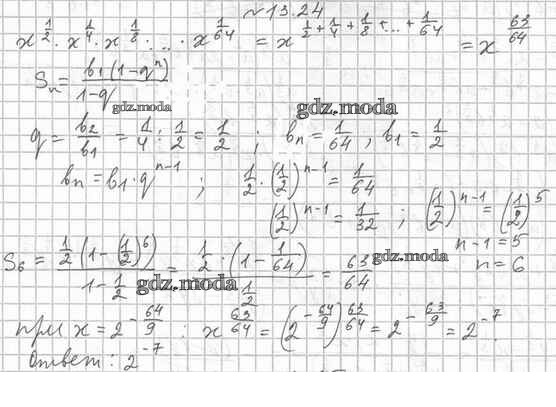 №13.24
x^{1/2} · x^{1/4} · x^{1/8} · ... · x^{1/64} = x^{1/2 + 1/4 + 1/8 + ... + 1/64} = x^{63/64}
S_n = b_1(1-q^n)/(1-q)
gdz.moda gdz.moda
q = b_2/b_1 = 1/4 : 1/2 = 1/2 ; b_n = 1/64 , b_1 = 1/2
b_n = b_1 · q^{n-1} ; 1/2 · (1/2)^{n-1} = 1/64
(1/2)^{n-1} = 1/32 ; (1/2)^{n-1} = (1/2)^5
n-1 = 5
S_6 = 1/2 (1 - (1/2)^6) / (1 - 1/2) = 1/2 · (1 - 1/64) / (1/2) = 63/64 n = 6
gdz.moda gdz.moda
при x = 2^{-64/9} : x^{63/64} = (2^{-64/9})^{63/64} = 2^{-63/9} = 2^{-7}
Ответ: 2^{-7}